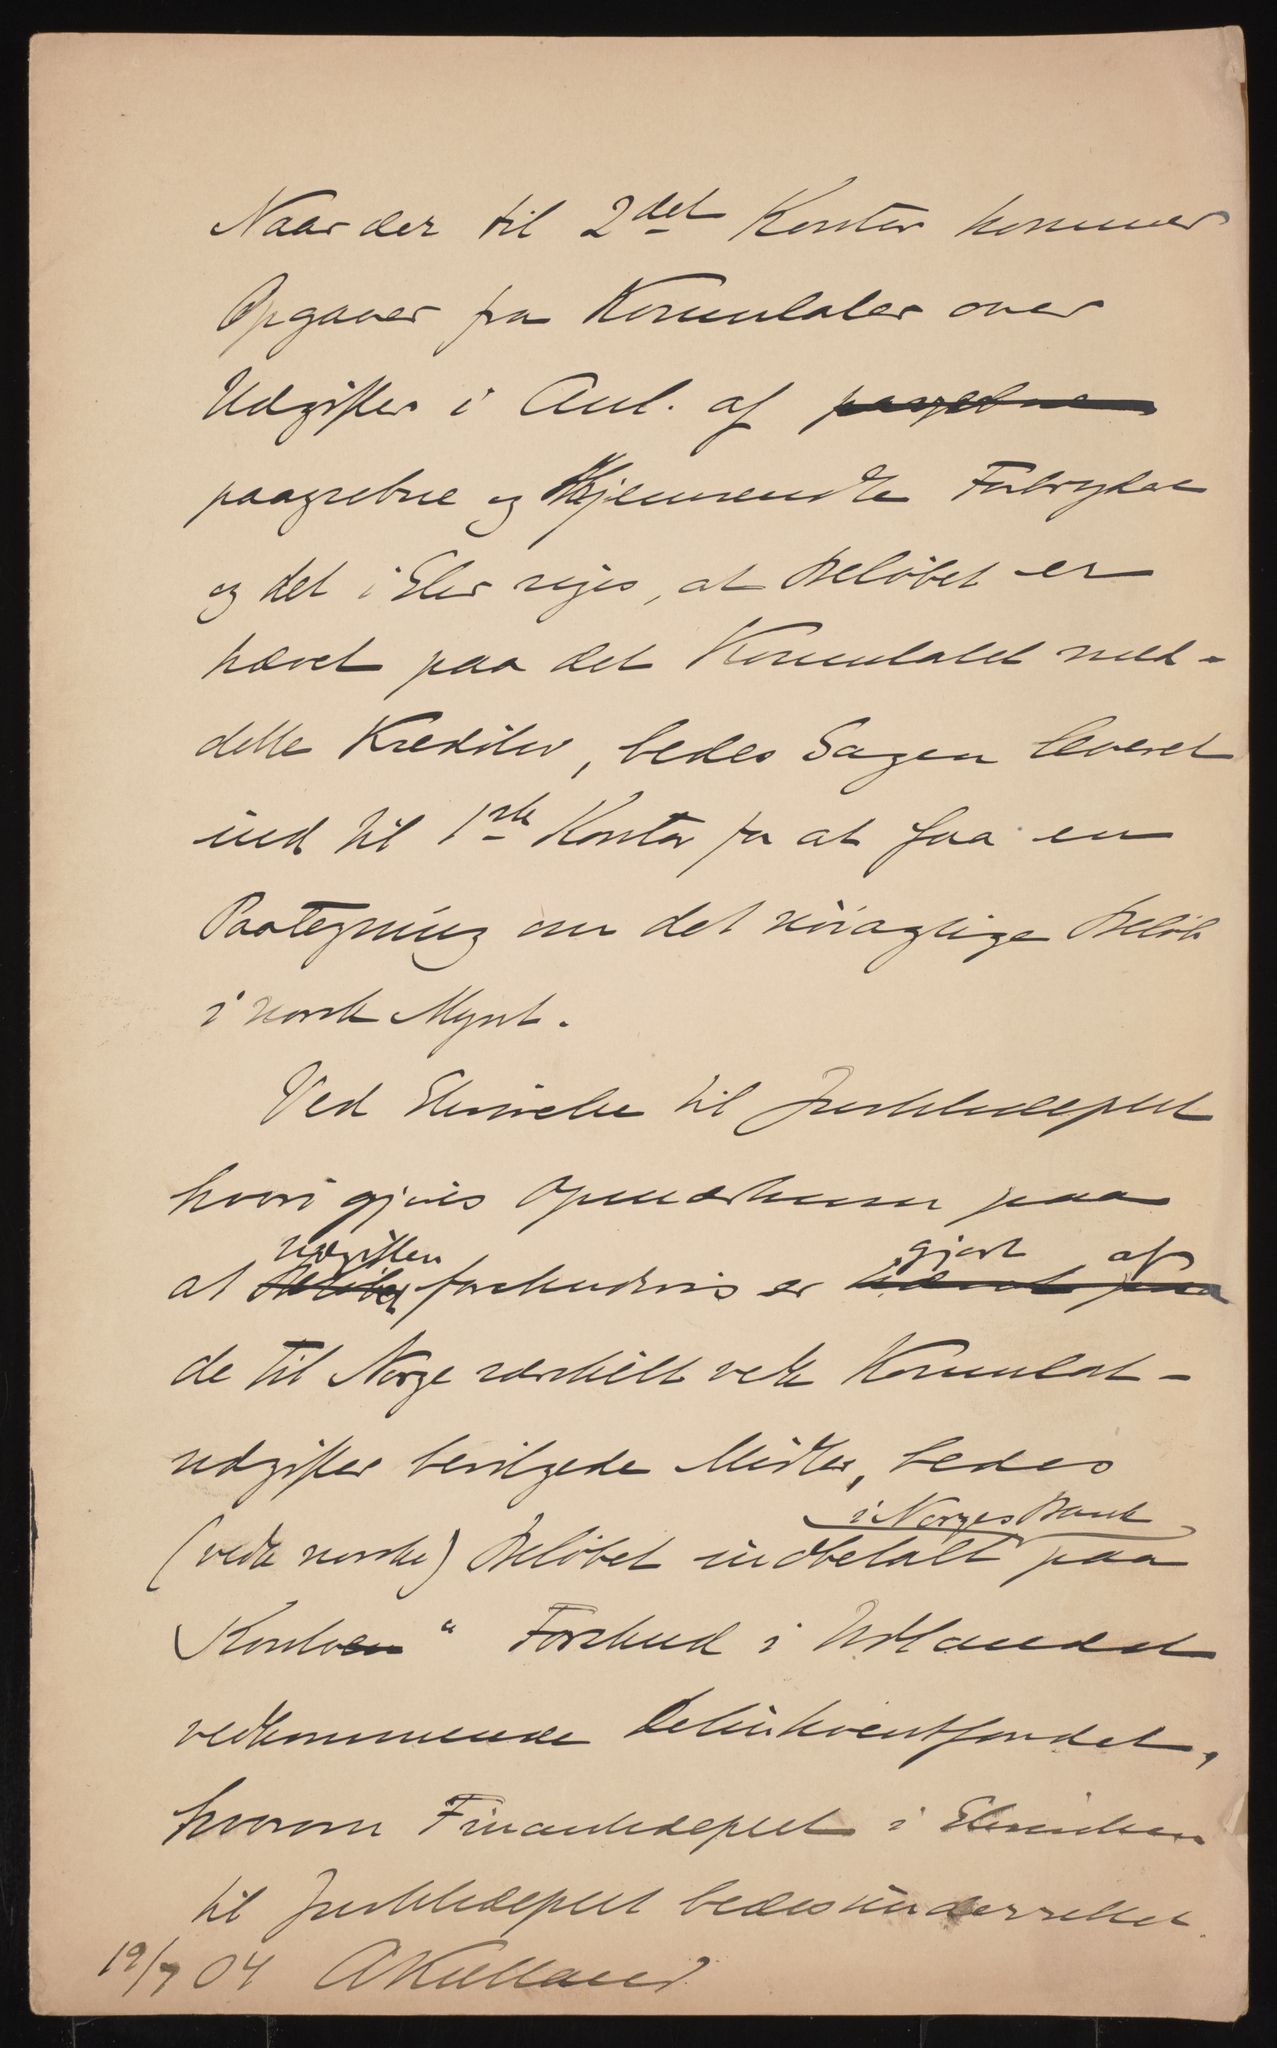 Naar der til 2det Kontor kommer
Opgaver fra Konsulater over
Udgifter i Anl. af paagrebne
paagrebne og hjemsendte Forbrydere
og det i Skr siges, at Beløbet er
hævet paa det Konsulatet med-
delte Kreditiv, bedes Sagen leveret
ind til 1ste Kontor for at faa en
Paategning om det nøiagtige Beløb
i norsk Mynt.
Ved Skrivelse til Justitsdeptet
hvori gjøres opmærksom paa
Udgiften gjort af
at Beløbet forskudsvis er hævet paa
de til Norge særskilt vedk Konsulat-
udgifter bevilgede Midler, bedes
i Norges Bank
(vedk norske) Beløbet indbetalt paa
Kontoen "Forskud i Udlandet
vedkommende Delinkventfondet,
hvorom Finantsdeptet i Skrivelsen
til Justitsdeptet bedes underrettet.
19/7 04 AKielland